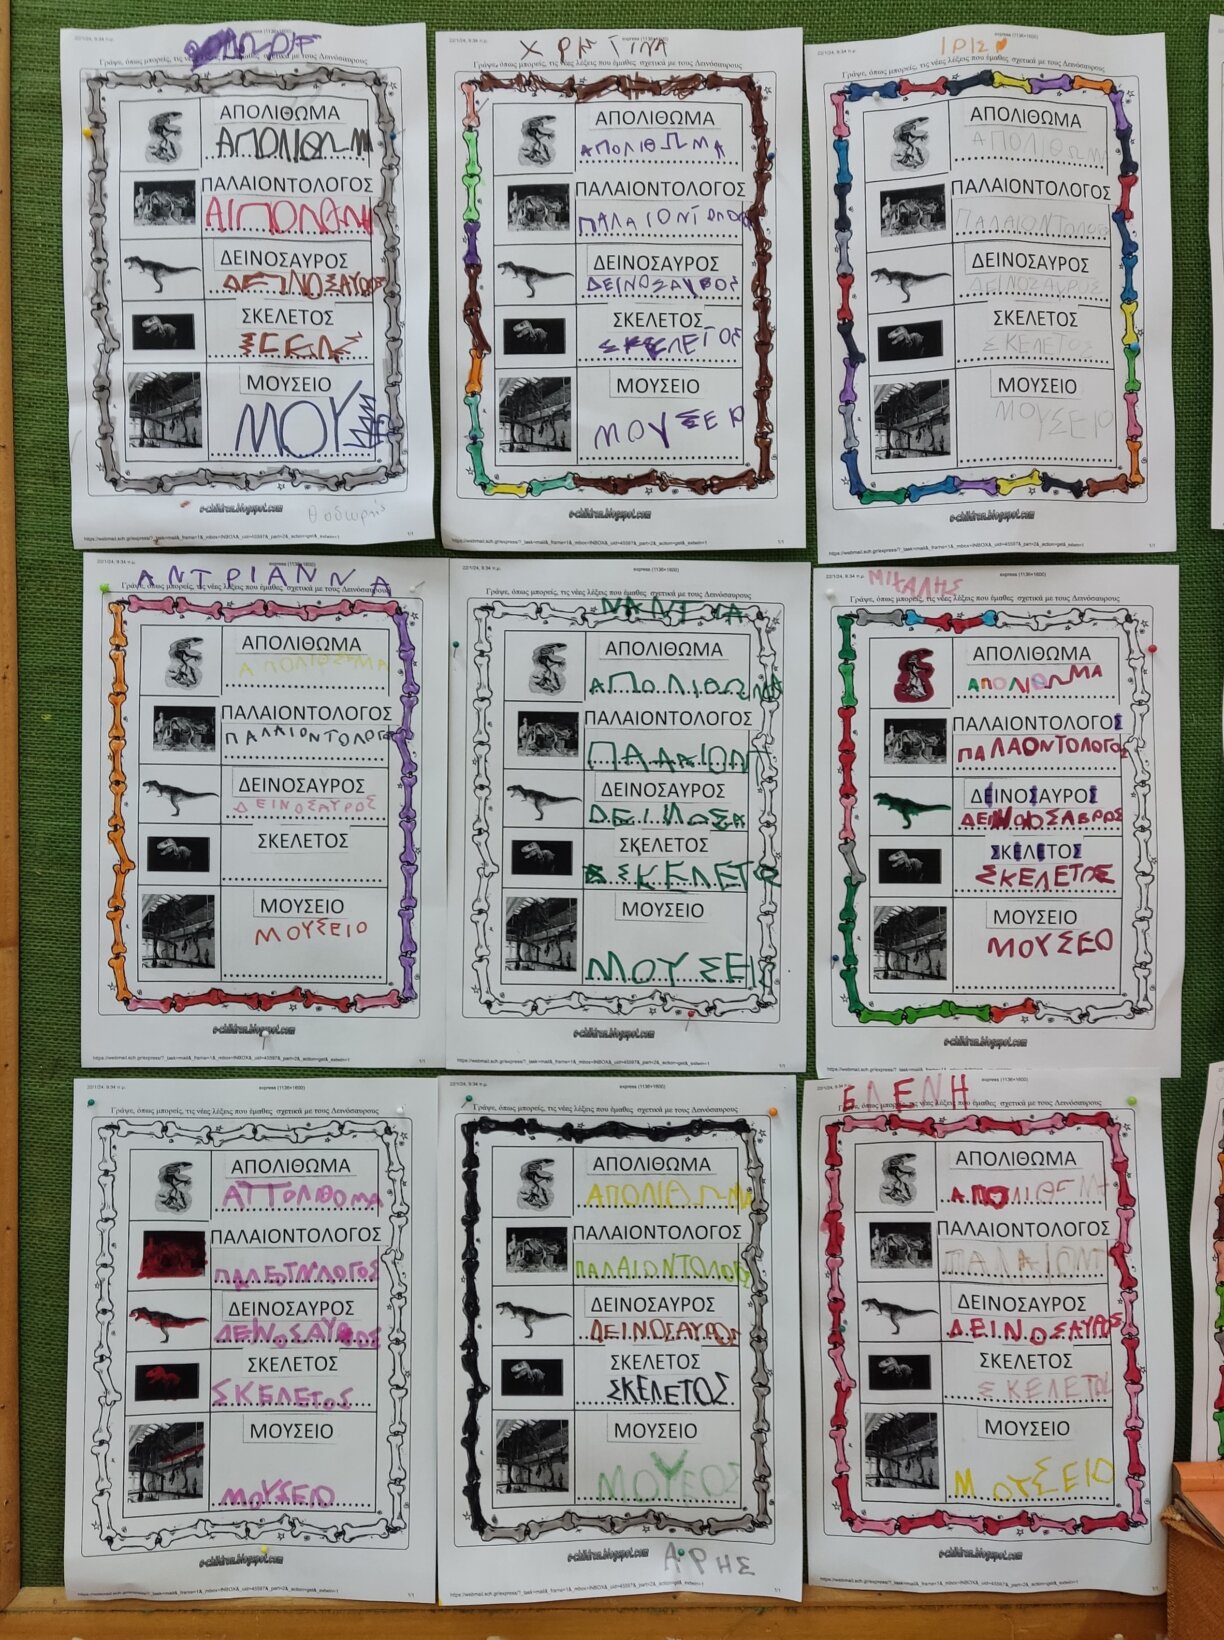 22/1/24, 9:34 π.μ.
express (1136×1600)
Γράψε, όπως μπορείς, τις νέες λέξεις που έμαθες σχετικά με τους Δεινόσαυρους
ΑΠΟΛΙΘΩΜΑ
ΑΠΟΛΙΘΩΜ
ΠΑΛΑΙΟΝΤΟΛΟΓΟΣ
ΔΕΙΝΟΣΑΥΡΟΣ
ΔΕΙΝΟΣΑΥΡΟΣ
ΣΚΕΛΕΤΟΣ
ΜΟΥΣΕΙΟ
ΜΟΥ
e-children.blogspot.com
θοδωρής
1/1
ΧΡΙΣΤΙΝΑ
Γράψε, όπως μπορείς, τις νέες λέξεις που έμαθες σχετικά με τους Δεινόσαυρους
ΑΠΟΛΙΘΩΜΑ
ΑΠΟΛΙΘΩΜΑ
ΠΑΛΑΙΟΝΤΟΛΟΓΟΣ
ΔΕΙΝΟΣΑΥΡΟΣ
ΔΕΙΝΟΣΑΥΡΟΣ
ΣΚΕΛΕΤΟΣ
ΜΟΥΣΕΙΟ
ΜΟΥΣΕΙΟ
e-children.blogspot.com
1/1
ΙΡΙΣ
Γράψε, όπως μπορείς, τις νέες λέξεις που έμαθες σχετικά με τους Δεινόσαυρους
ΑΠΟΛΙΘΩΜΑ
ΑΠΟΛΙΘΩΜΑ
ΠΑΛΑΙΟΝΤΟΛΟΓΟΣ
ΠΑΛΑΙΟΝΤΟΛΟΓΟΣ
ΔΕΙΝΟΣΑΥΡΟΣ
ΔΕΙΝΟΣΑΥΡΟΣ
ΣΚΕΛΕΤΟΣ
ΣΚΕΛΕΤΟΣ
ΜΟΥΣΕΙΟ
ΜΟΥΣΕΙΟ
e-children.blogspot.com
1/1
ΑΝΤΡΙΑΝΝΑ
Γράψε, όπως μπορείς, τις νέες λέξεις που έμαθες σχετικά με τους Δεινόσαυρους
ΑΠΟΛΙΘΩΜΑ
ΠΑΛΑΙΟΝΤΟΛΟΓΟΣ
ΠΑΛΑΙΟΝΤΟΛΟΓΟ
ΔΕΙΝΟΣΑΥΡΟΣ
ΔΕΙΝΟΣΑΥΡΟΣ
ΣΚΕΛΕΤΟΣ
ΜΟΥΣΕΙΟ
ΜΟΥΣΕΙΟ
e-children.blogspot.com
1/1
Γράψε, όπως μπορείς, τις νέες λέξεις που έμαθες σχετικά με τους Δεινόσαυρους
ΝΑΝΤΙΑ
ΑΠΟΛΙΘΩΜΑ
ΑΠΟΛΙΘΩΜΑ
ΠΑΛΑΙΟΝΤΟΛΟΓΟΣ
ΔΕΙΝΟΣΑΥΡΟΣ
ΔΕΙΝΟΣΑ
ΣΚΕΛΕΤΟΣ
ΣΚΕΛΕΤΟΣ
ΜΟΥΣΕΙΟ
ΜΟΥΣΕΙ
e-children.blogspot.com
1/1
ΜΙΧΑΛΗΣ
Γράψε, όπως μπορείς, τις νέες λέξεις που έμαθες σχετικά με τους Δεινόσαυρους
ΑΠΟΛΙΘΩΜΑ
ΑΠΟΛΙΘΩΜΑ
ΠΑΛΑΙΟΝΤΟΛΟΓΟΣ
ΠΑΛΑΟΝΤΟΛΟΓΟΣ
ΔΕΙΝΟΣΑΥΡΟΣ
ΣΚΕΛΕΤΟΣ
ΣΚΕΛΕΤΟΣ
ΜΟΥΣΕΙΟ
ΜΟΥΣΕΟ
e-children.blogspot.com
1/1
22/1/24, 9:34 π.μ.
express (1136×1600)
Γράψε, όπως μπορείς, τις νέες λέξεις που έμαθες σχετικά με τους Δεινόσαυρους
ΑΠΟΛΙΘΩΜΑ
ΑΠΟΛΙΘΟΜΑ
ΠΑΛΑΙΟΝΤΟΛΟΓΟΣ
ΔΕΙΝΟΣΑΥΡΟΣ
ΔΕΙΝΟΣΑΥΡΟΣ
ΣΚΕΛΕΤΟΣ
ΣΚΕΛΕΤΟΣ
ΜΟΥΣΕΙΟ
ΜΟΥΣΕΙΟ
e-children.blogspot.com
1/1
22/1/24, 9:34 π.μ.
express (1136×1600)
Γράψε, όπως μπορείς, τις νέες λέξεις που έμαθες σχετικά με τους Δεινόσαυρους
ΑΠΟΛΙΘΩΜΑ
ΑΠΟΛΙΘΩΜΑ
ΠΑΛΑΙΟΝΤΟΛΟΓΟΣ
ΠΑΛΑΙΟΝΤΟΛΟΓΟΣ
ΔΕΙΝΟΣΑΥΡΟΣ
ΔΕΙΝΟΣΑΥΡΟΣ
ΣΚΕΛΕΤΟΣ
ΣΚΕΛΕΤΟΣ
ΜΟΥΣΕΙΟ
ΜΟΥΕΟΣ
e-children.blogspot.com
ΑΡΗΣ
1/1
ΕΛΕΝΗ
Γράψε, όπως μπορείς, τις νέες λέξεις που έμαθες σχετικά με τους Δεινόσαυρους
ΑΠΟΛΙΘΩΜΑ
ΠΑΛΑΙΟΝΤΟΛΟΓΟΣ
ΠΑΛΑΙΟΝΤ
ΔΕΙΝΟΣΑΥΡΟΣ
ΔΕΙΝΟΣΑΥΡΟΣ
ΣΚΕΛΕΤΟΣ
ΣΚΕΛΕΤΟΣ
ΜΟΥΣΕΙΟ
ΜΟΥΣΕΙΟ
e-children.blogspot.com
1/1